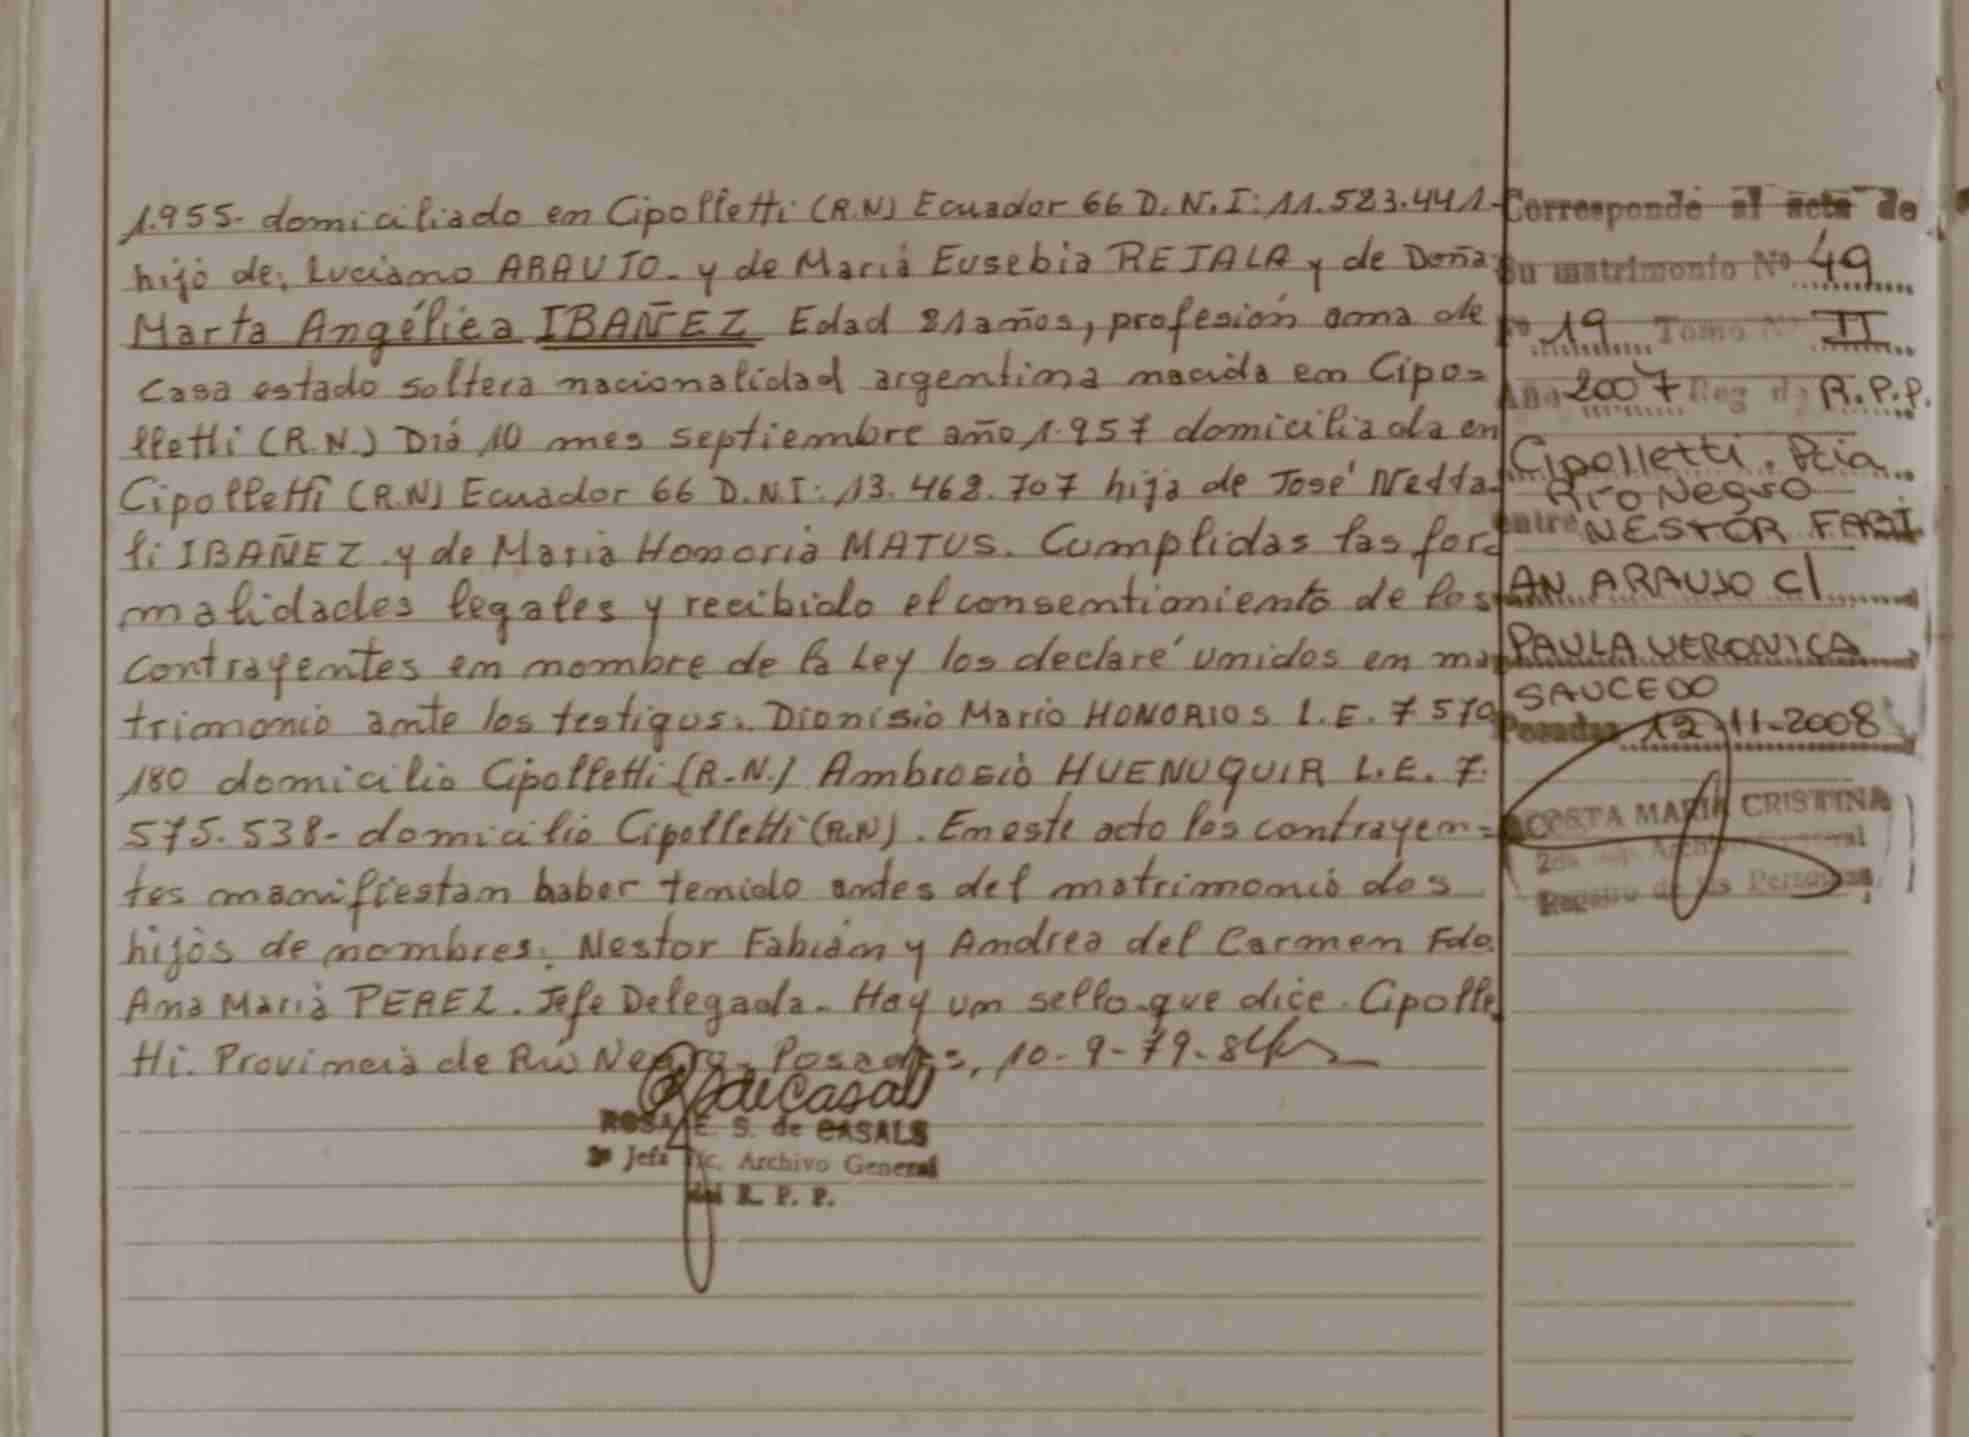 1.955- domiciliado en Cipolletti (R.N) Ecuador 66 D.N.I: 11.523.441-
hijo de: Luciano ARAUJO- y de María Eusebia REJALA y de Doña
Marta Angélica IBAÑEZ Edad 21 años, profesión ama de
casa estado soltera nacionalidad argentina nacida en Cipo=
lletti (R.N.) Día 10 mes septiembre año 1.957 domiciliada en
Cipolletti (R.N) Ecuador 66 D.N.I: 13.462.707 hija de José Nefta-
li IBAÑEZ y de María Honoria MATUS. Cumplidas las for-
malidades legales y recibido el consentimiento de los
contrayentes en nombre de la Ley los declaré unidos en ma
trimonio ante los testigos: Dionisio Mario HONORIOS L.E. 7 570
180 domicilio Cipolletti (R.N.) Ambrosio HUENUQUIR L.E. 7.
575.538- domicilio Cipolletti (R.N). En este acto los contrayen=
tes manifiestan haber tenido antes del matrimonio dos
hijos de nombres: Nestor Fabián y Andrea del Carmen Fdo.
Ana María PEREZ. Jefe Delegada. Hay un sello que dice. Cipolle
tti. Provincia de Río Negro. Posadas, 10-9-79.
ROSA E. S. de CASALS
Jefa Archivo General
del R. P. P.
Corresponde al acta de
su matrimonio Nº 49
Fº 19 Tomo Nº II
Año 2007 Reg de R.P.P.
Cipolletti. Pcia
Río Negro
entre NESTOR FABI
AN ARAUJO c/
PAULA VERONICA
SAUCEDO
Posadas 12-11-2008
ACOSTA MARIA CRISTINA
Archivo General
Registro de las Personas